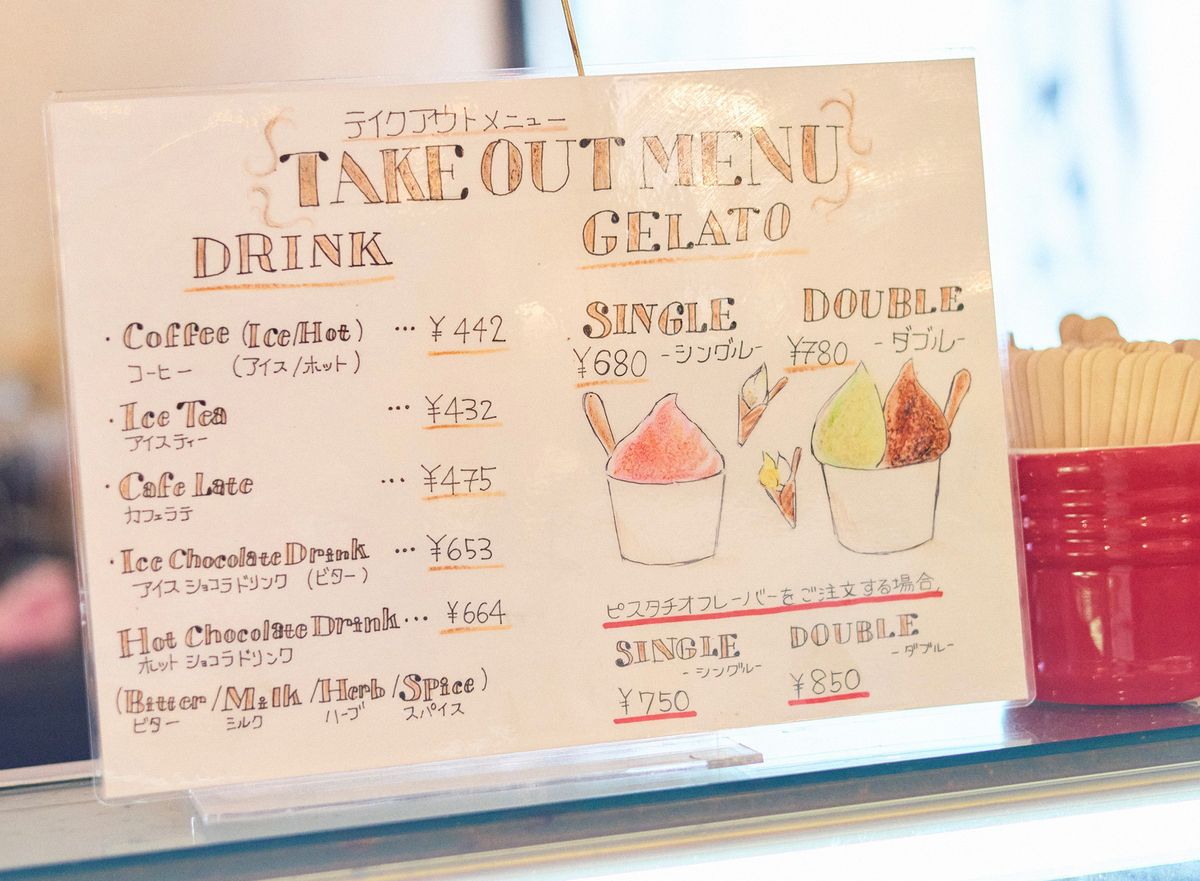 テイクアウトメニュー
TAKE OUT MENU
DRINK
・Coffee (Ice/Hot) … ¥442
コーヒー (アイス/ホット)
・Ice Tea … ¥432
アイスティー
・Cafe Late … ¥475
カフェラテ
・Ice Chocolate Drink … ¥653
アイス ショコラドリンク (ビター)
Hot Chocolate Drink… ¥664
ホット ショコラドリンク
(Bitter/Milk/Herb/Spice)
ビター ミルク ハーブ スパイス
GELATO
SINGLE DOUBLE
-シングル- -ダブル-
¥680 ¥780
ピスタチオフレーバーをご注文する場合、
SINGLE DOUBLE
-シングル- -ダブル-
¥750 ¥850